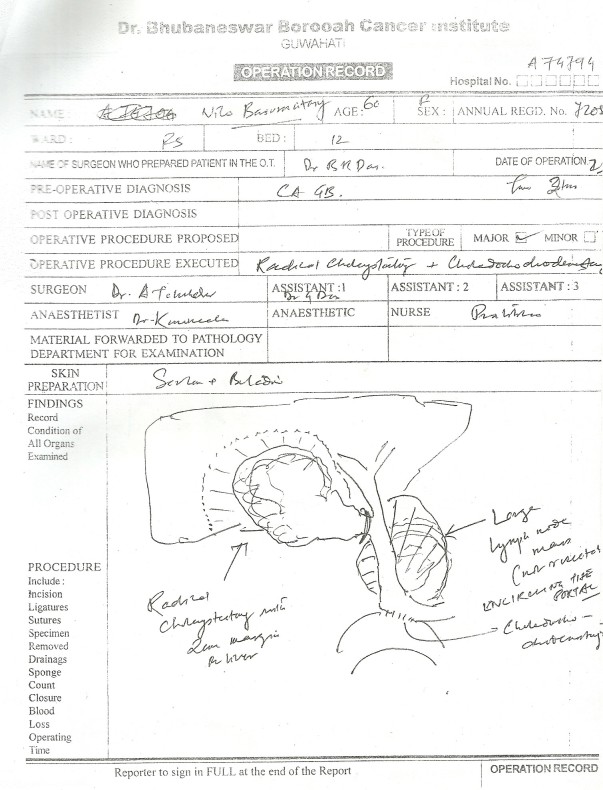 Dr. Bhubaneswar Borooah Cancer Institute
GUWAHATI
OPERATION RECORD
A 74794
Hospital No.
NAME: Nilo Basumatary AGE: 60 SEX: F ANNUAL REGD. No.
WARD: BED: 12
NAME OF SURGEON WHO PREPARED PATIENT IN THE O.T. Dr B R Das. DATE OF OPERATION
PRE-OPERATIVE DIAGNOSIS CA GB.
POST OPERATIVE DIAGNOSIS
OPERATIVE PROCEDURE PROPOSED TYPE OF PROCEDURE MAJOR MINOR
OPERATIVE PROCEDURE EXECUTED Radical +
SURGEON Dr. ASSISTANT :1 ASSISTANT : 2 ASSISTANT : 3
ANAESTHETIST Dr ANAESTHETIC NURSE
MATERIAL FORWARDED TO PATHOLOGY
DEPARTMENT FOR EXAMINATION
SKIN
PREPARATION
FINDINGS
Record
Condition of
All Organs
Examined
Large
lymph node
mass
ENCIRCLING THE
PORTAL
PROCEDURE
Include :
Incision
Ligatures
Sutures
Specimen
Removed
Drainags
Sponge
Count
Closure
Blood
Loss
Operating
Time
Radical
with
2cm margin
liver
Choledocho-
Reporter to sign in FULL at the end of the Report
OPERATION RECORD